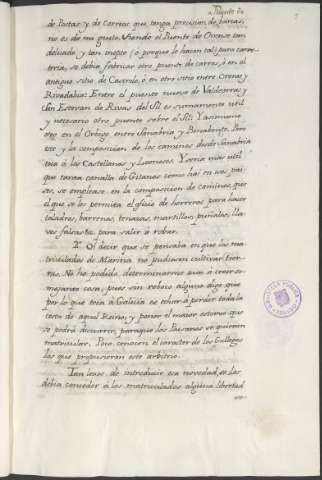 de Postas y de Correos que tenga precision de barcas,
no es de mi gusto. Siendo el Puente de Orense tan
delicado, y tan inepto (ó porque lo hacen tal) para carre-
tería, se debia fabricar otro puente de carros, ó en el
antiguo sitio de Castrelo, ó en otro sitio entre Orense y
Rivadabia: Entre el puente nuevo de Valdeorras, y
San Estevan de Rivas del Sil es sumamente util
y necesario otro puente sobre el Sil: Y asimismo
otro en el Orbigo entre Sanabria y Benabente. Pero
esto y la composicion de los caminos desde Sanabria
toca á los Castellanos y Leoneses. Y seria mas util
que tanta canalla de Gitanos como hai en sus pai-
ses, se emplease en la composicion de caminos, que
el que se les permita el oficio de herreros para hacer
taladros, barrenas, tenazas, martillos, puñales, lla-
ves falsas &c. para salir á robar.
Oí decir que se pensaba en que los ma-
triculados de Marina no pudiesen cultivar tier-
ras. No he podido determinarme aun á creer se-
mejante cosa, pues sin rebozo alguno digo que
por lo que toca á Galicia se echará á perder toda la
costa de aquel Reino, y poner el maior estorvo que
se podrá discurrir, para que los Paisanos se quieran
matricular. Poco conocen el caracter de los Gallegos
los que propusieron este arbitrio.
Tan lexos de introducir esa novedad, se les
debia conceder á los matriculados alguna libertad